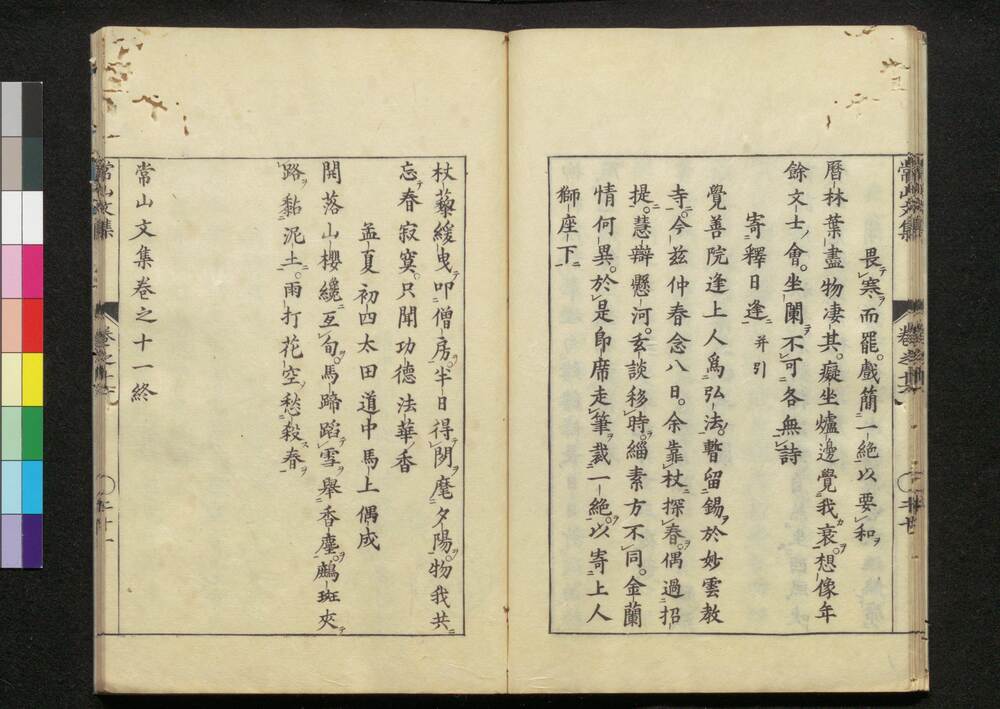 畏寒而罷戲簡一絶以要和
曆林葉盡物凄其癡坐爐邊覺我衰想像年
餘文士會坐闌不可各無詩
寄釋日逢并引
覺善院逢上人爲弘法暫留錫於妙雲教
寺今兹仲春念八日余靠杖探春偶過招
提慧辯懸河玄談移時緇素方不同金蘭
情何異於是即席走筆裁一絶以寄上人
獅座下
杖藜緩曳叩僧房半日得閒麾夕陽物我共
忘春寂寞只聞功德法華香
孟夏初四太田道中馬上偶成
開落山櫻纔互旬馬蹄蹈雪舉香塵鷓斑夾
路黏泥土雨打花空愁殺春
常山文集卷之十一終
常山文集
卷之十一